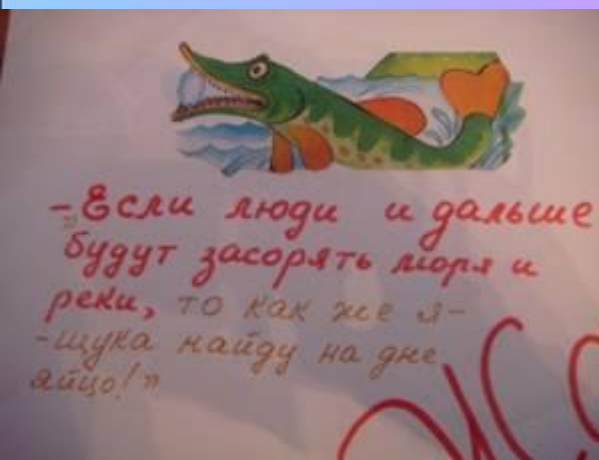 – Если люди и дальше
„будут засорять моря и
реки, то как же я-
-щука найду на дне
яйцо!”